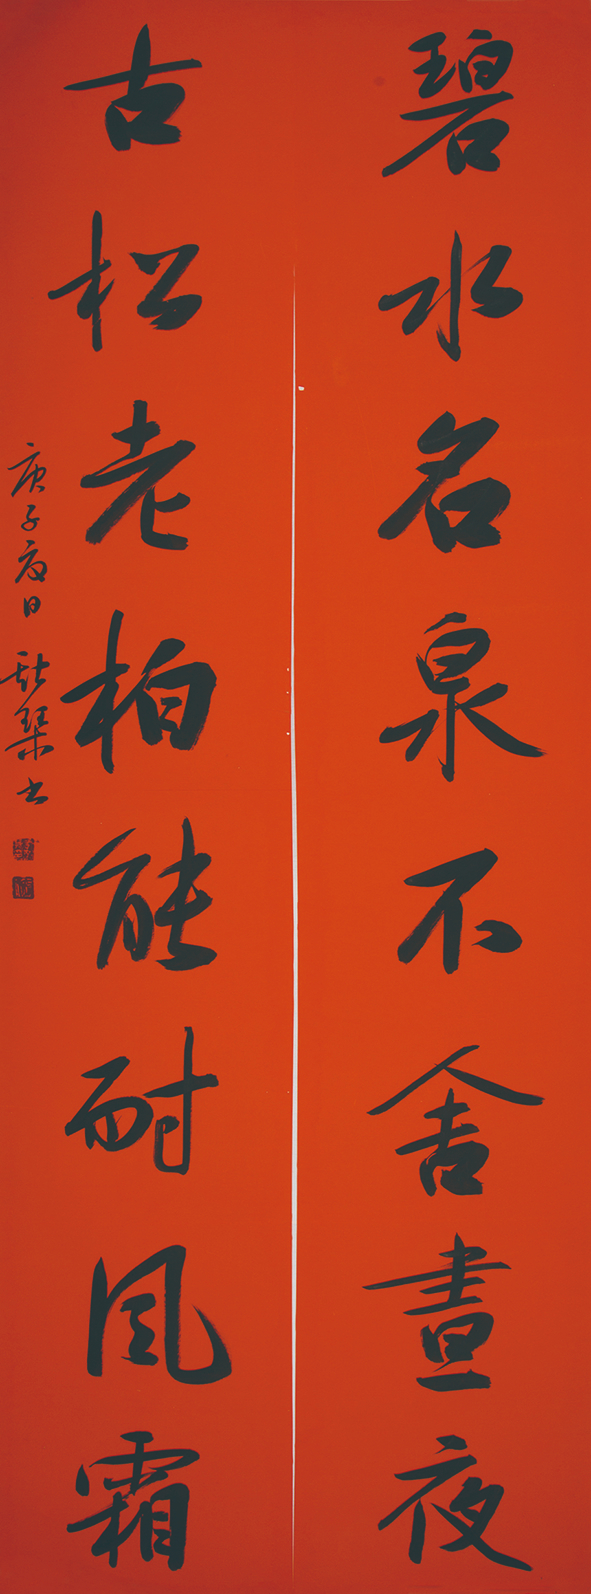 碧水名泉不舍晝夜
古松老柏能耐風霜
庚子夏日
琹书